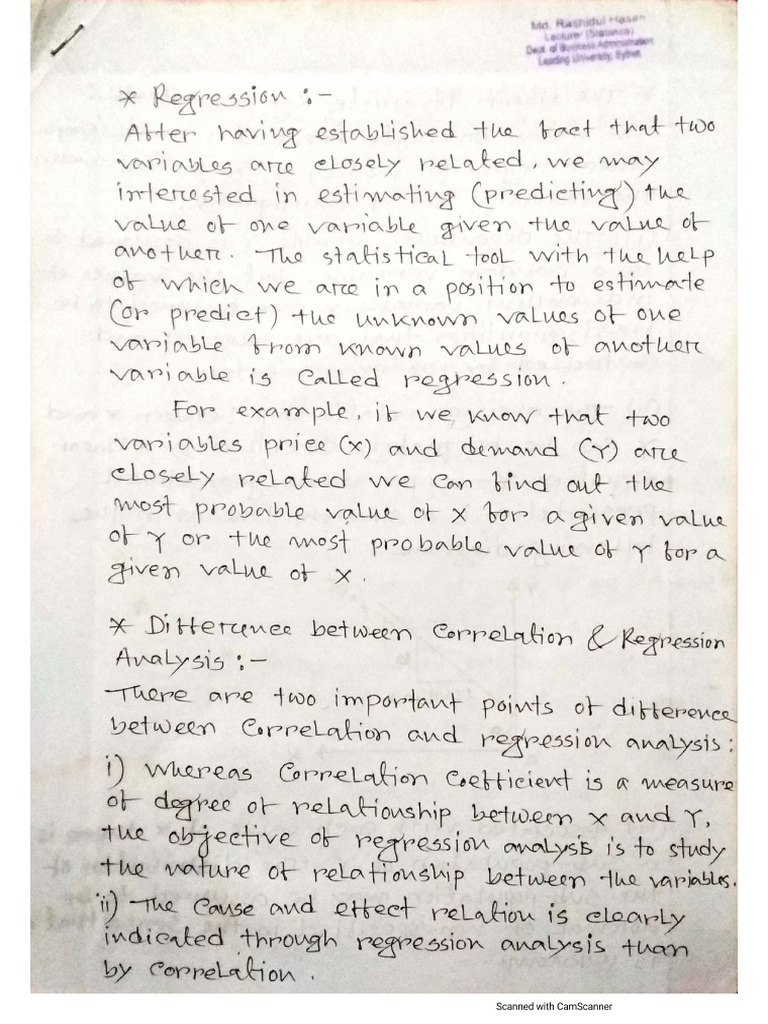 Md. Rashidul Hasan
Lecturer (Statistics)
Dept. of Business Administration
Leading University, Sylhet
* Regression :-
After having established the fact that two
variables are closely related, we may
interested in estimating (predicting) the
value of one variable given the value of
another. The statistical tool with the help
of which we are in a position to estimate
(or predict) the unknown values of one
variable from known values of another
variable is called regression.
For example, if we know that two
variables price (X) and demand (Y) are
closely related we can find out the
most probable value of X for a given value
of Y or the most probable value of Y for a
given value of X.
* Difference between Correlation & Regression
Analysis :-
There are two important points of difference
between Correlation and regression analysis:
i) Whereas Correlation Coefficient is a measure
of degree of relationship between X and Y,
the objective of regression analysis is to study
the nature of relationship between the variables.
ii) The Cause and effect relation is clearly
indicated through regression analysis than
by Correlation.
Scanned with CamScanner